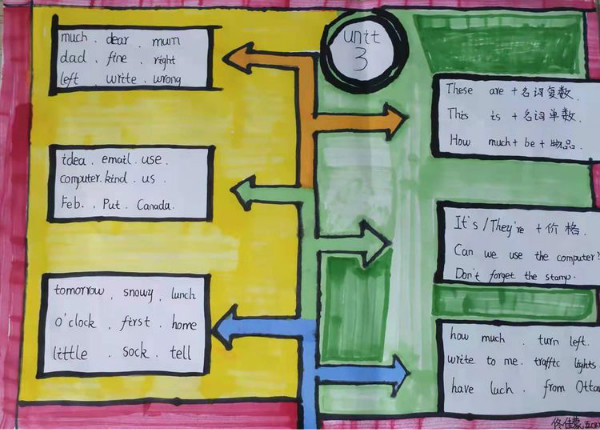 unit
3
much . dear . mum
dad . fine . right
left write . wrong
idea . email . use .
computer . kind . us .
Feb. . Put . Canada.
tomorrow , snowy , lunch
o'clock . first . home
little . sock . tell
These are + 名词复数.
This is + 名词单数.
How much + be + 物品.
It's / They're + 价格.
Can we use the computer?
Don't forget the stamp.
how much . turn left.
write to me . traffic lights
have luch . from Ottaw